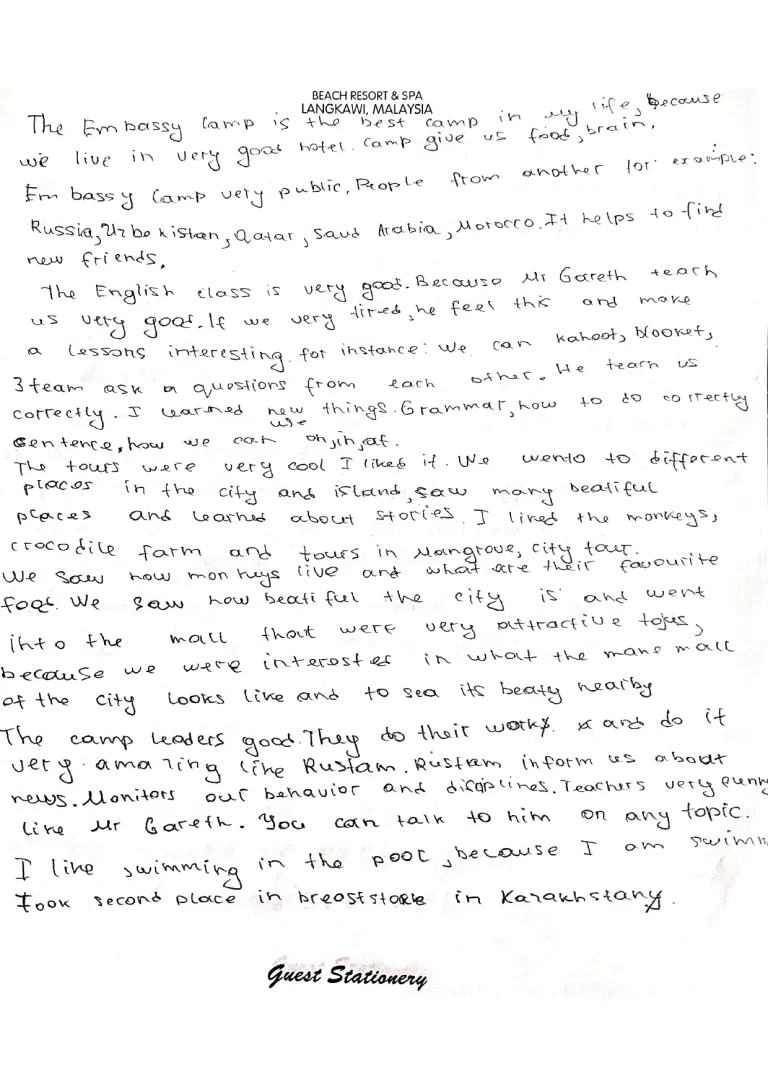 BEACH RESORT & SPA
LANGKAWI, MALAYSIA
The Embassy Camp is the best camp in my life, because
we live in very good hotel. Camp give us food, brain.
Embassy Camp very public, People from another for example:
Russia, Uzbekistan, Qatar, Saud Arabia, Morocco. It helps to find
new friends.
The English class is very good. Because Mr Gareth teach
us very good. If we very tired, he feel this and make
a lessons interesting for instance: We can kahoot, blooket,
3 team ask a questions from each other. He teach us
correctly. I learned new things. Grammar, how to do correctly
sentence, how we can use on, in, at.
The tours were very cool I liked it. We wento to different
places in the city and island, saw many beatiful
places and learned about stories. I liked the monkeys,
crocodile farm and tours in Mangrove, city tour.
We saw how monkeys live and what are their favourite
food. We saw how beatiful the city is and went
into the mall that were very attractive to us,
because we were interested in what the mane mall
of the city looks like and to sea its beaty nearby
The camp leaders good. They do their work and do it
very amazing like Rustam. Rustam inform us about
news. Monitors our behavior and disciplines. Teachers very funny
like Mr Gareth. You can talk to him on any topic.
I like swimming in the pool, because I am swimm
took second place in breoststoke in Kazakhstan.
Guest Stationery